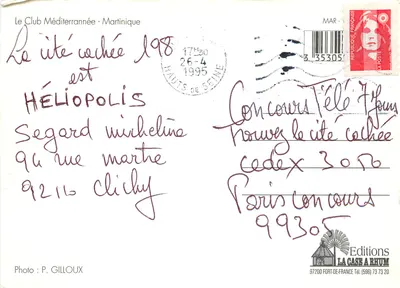 Le Club Méditerrannée - Martinique
La cité cachée 198
est
HÉLIOPOLIS
Segard micheline
94 rue martre
92210 Clichy
17H30
26-4
1995
HAUTS DE SEINE
MAR
3 35305
Concours Télé 7 Jours
trouvez le cité cachée
cedex 3050
Paris concours
99305
Editions
LA CASE A RHUM
97200 FORT-DE-FRANCE Tél. (596) 73 73 20
Photo : P. GILLOUX